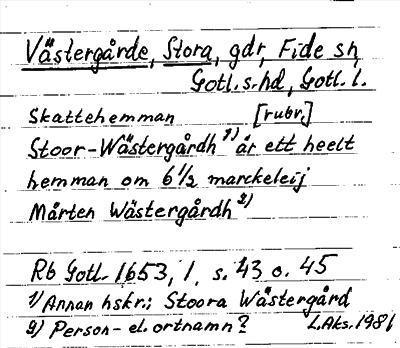 Västergårde, Stora, gdr, Fide sn,
Gotl. s. hd, Gotl. l.
Skattehemman [rubr.]
Stoor-Wästergårdh 1) är ett heelt
hemman om 6 1/2 marckeleij
Mårten Wästergårdh 2)
Rb Gotl. 1653, 1, s. 43 o. 45
1) Annan hskr.: Stoora Wästergård
2) Person- el. ortnamn? L. Aks. 1981